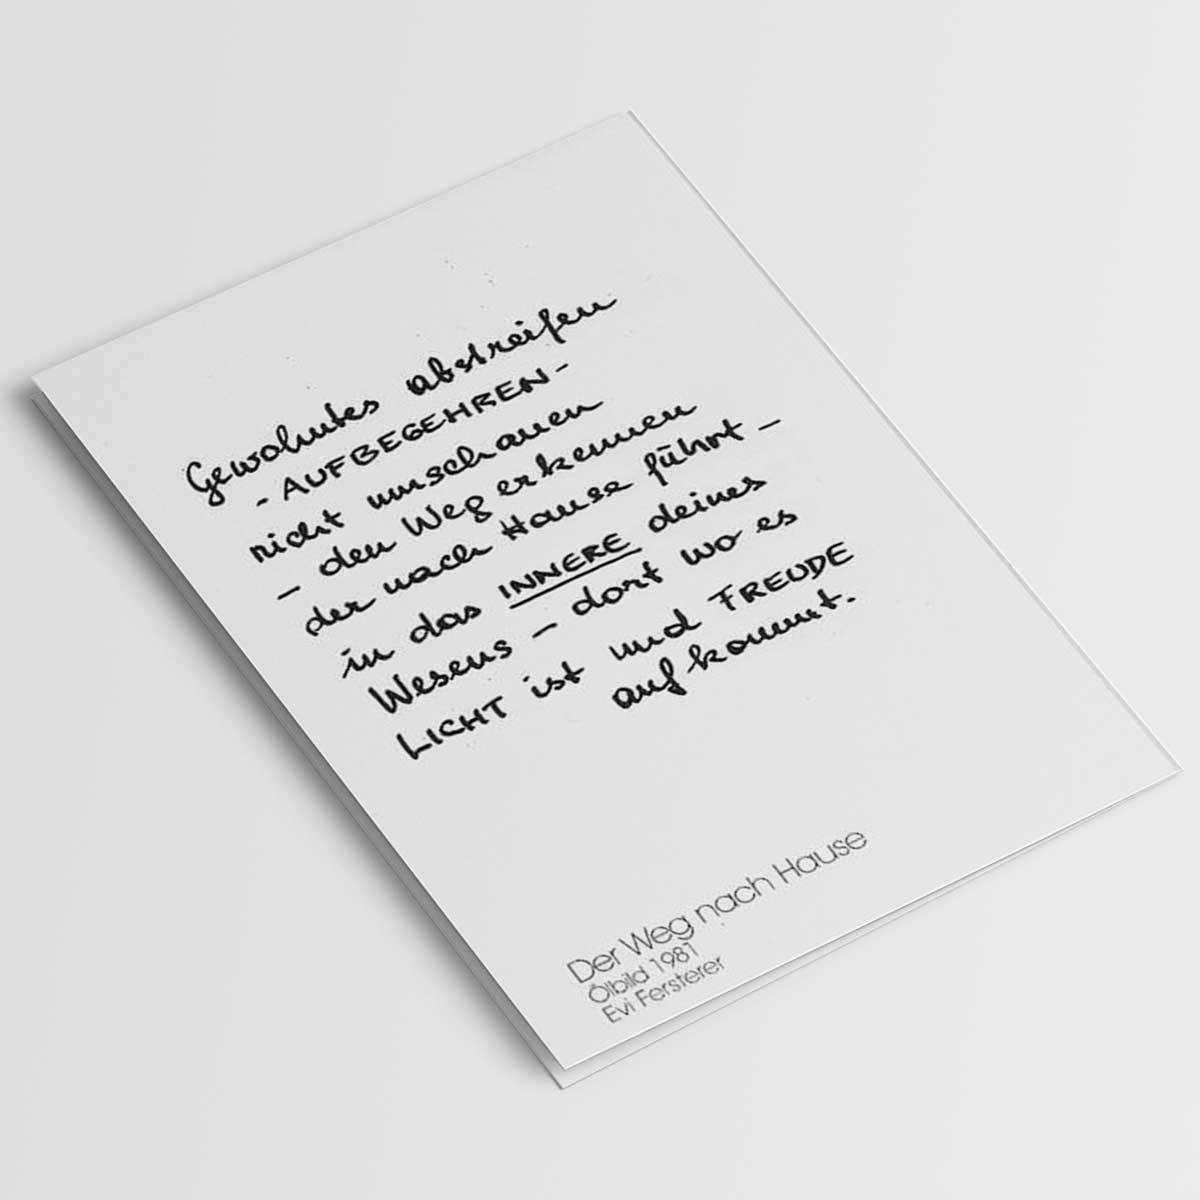 Gewohntes abstreifen
- AUFBEGEHREN -
nicht umschauen
- den Weg erkennen
der nach Hause führt -
in das INNERE deines
Wesens - dort wo es
LICHT ist und FREUDE
aufkommt.
Der Weg nach Hause
Ölbild 1981
Evi Fersterer